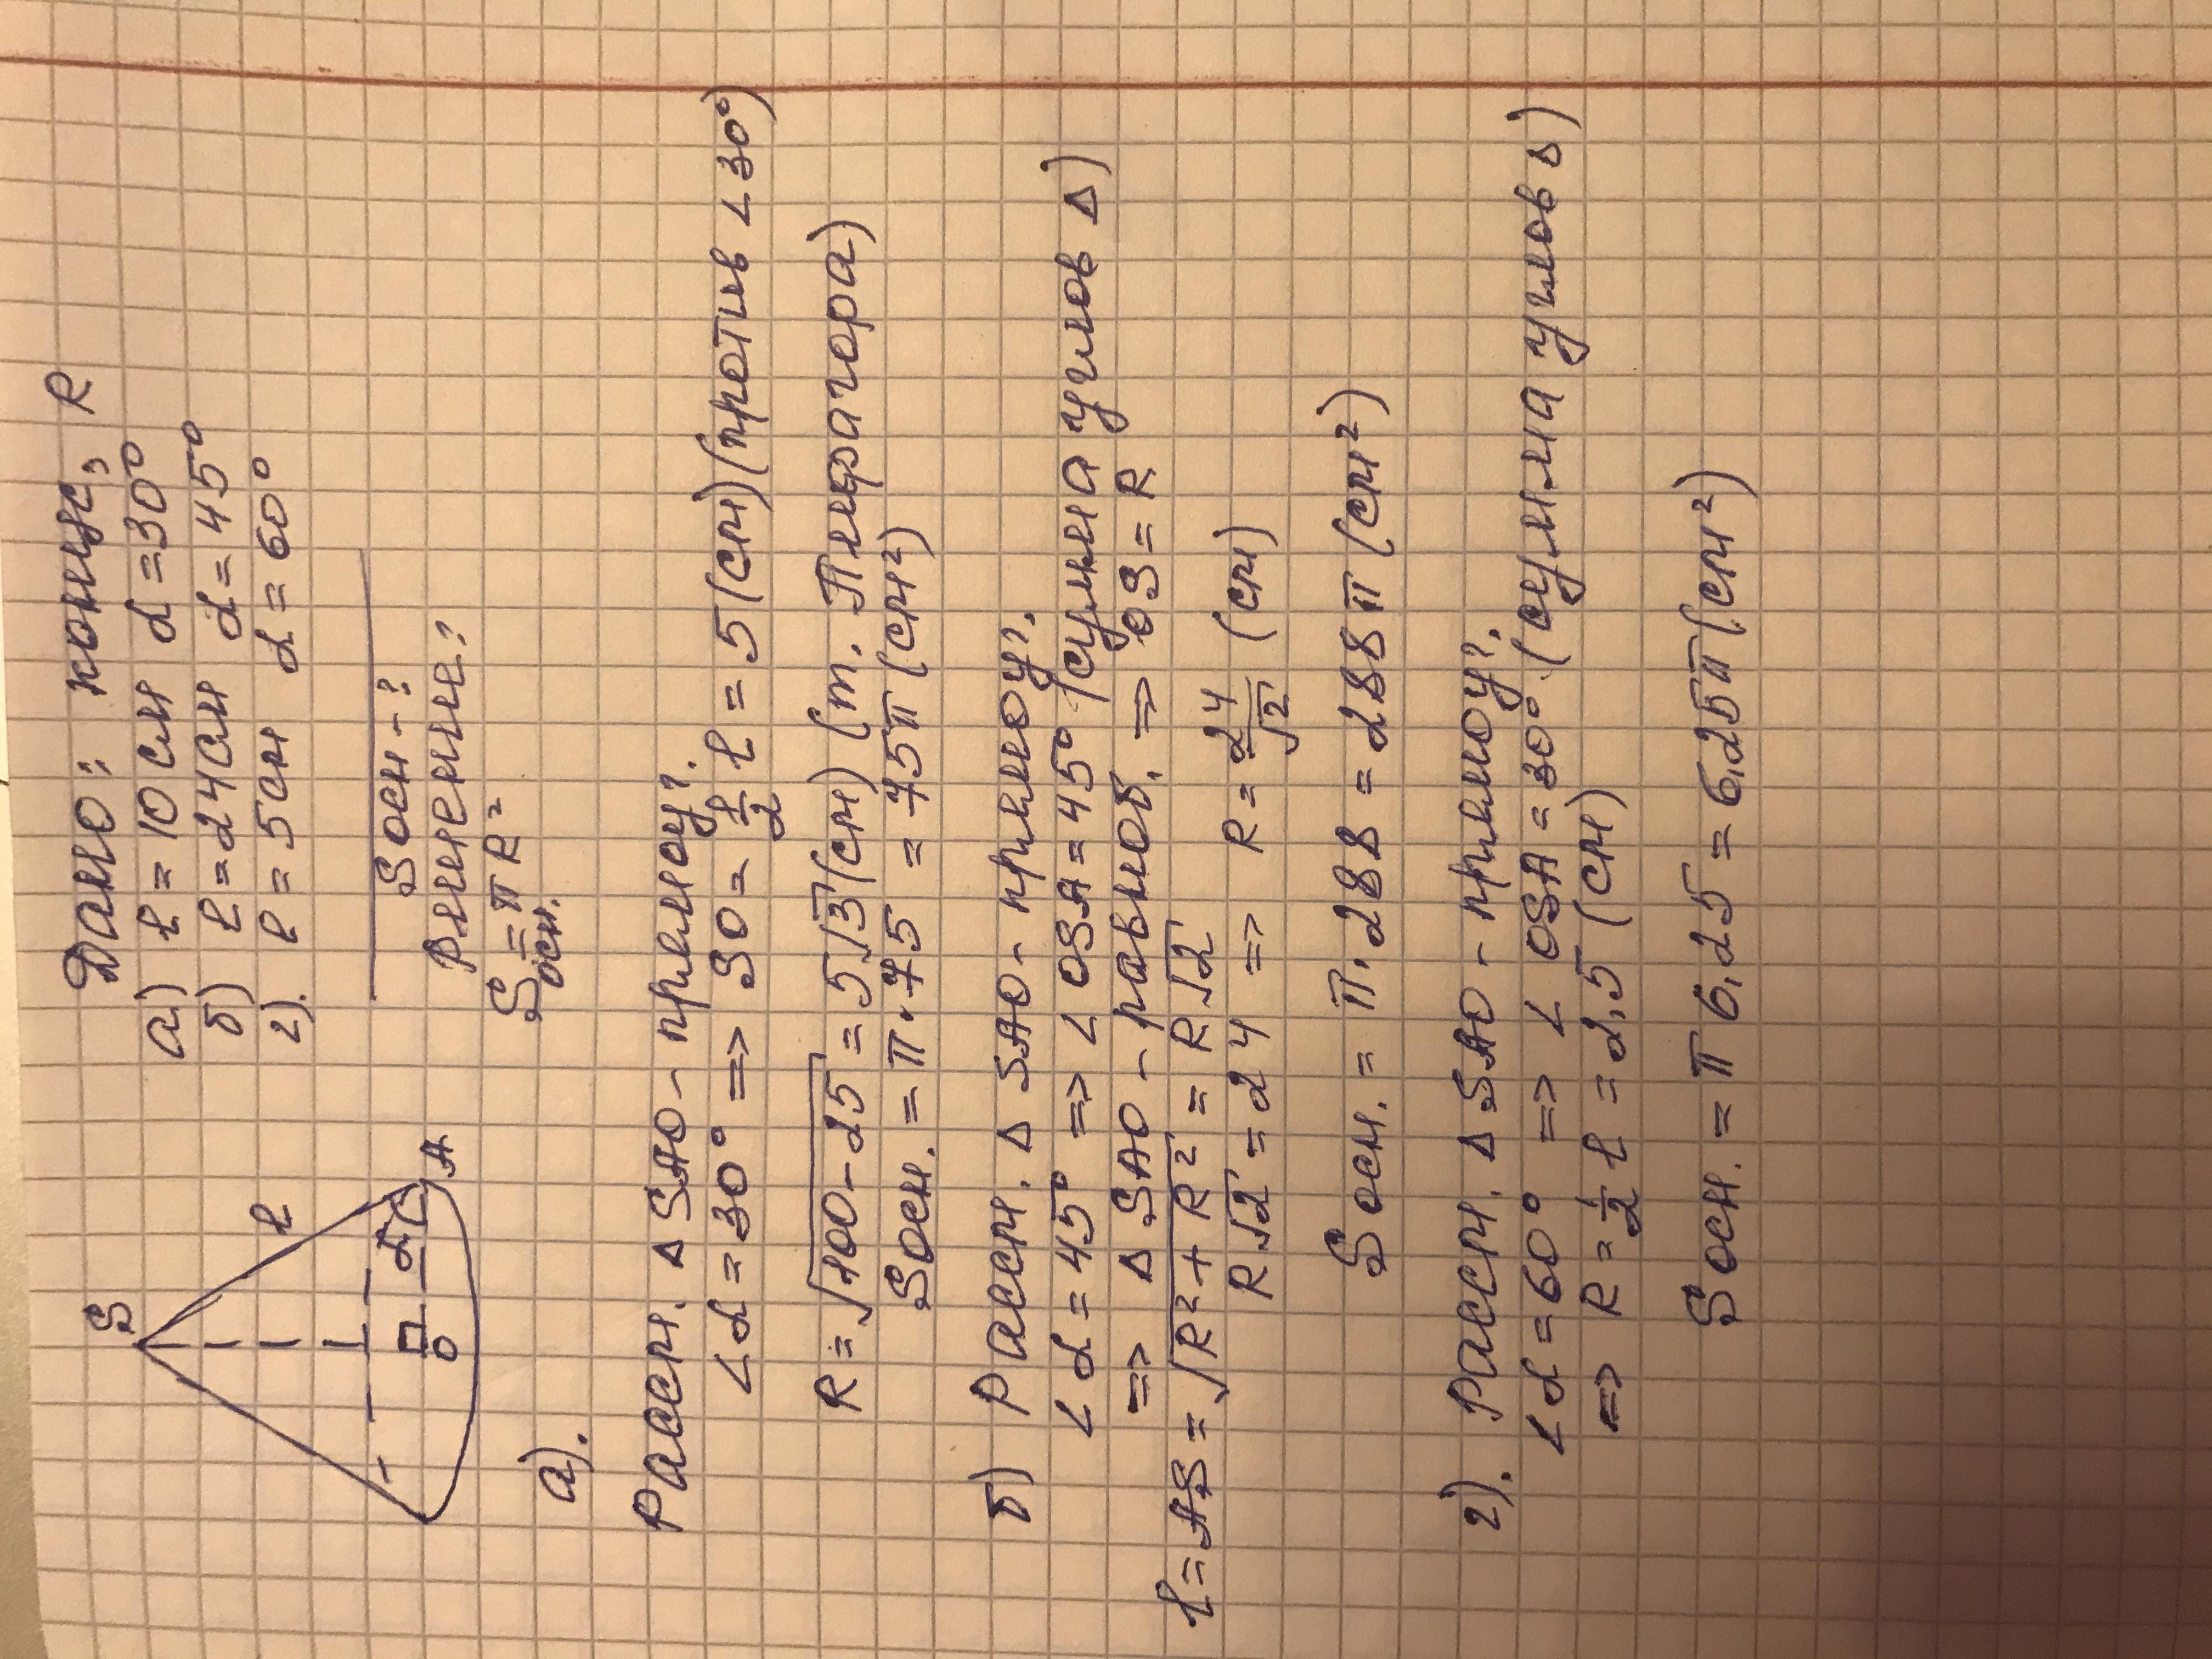 Дано: конус, R
а) ℓ = 10 см α = 30°
б) ℓ = 24 см α = 45°
г). ℓ = 5 см α = 60°
S осн - ?
S
ℓ
α
О
А
Решение:
S осн. = π R²
а).
Рассм. Δ SAO - прямоуг.
∠α = 30° => SO = 1/2 ℓ = 5 (см) (против ∠30°)
R = √100-25 = 5√3 (см) (т. Пифагора)
S осн. = π · 75 = 75π (см²)
б) Рассм. Δ SAO - прямоуг.
∠α = 45° => ∠ OSA = 45° (сумма углов Δ)
=> Δ SAO - равноб. => OS = R
ℓ = AS = √R² + R² = R√2
R√2 = 24 => R = 24/√2 (см)
S осн. = π · 288 = 288 π (см²)
г). Рассм. Δ SAO - прямоуг.
∠α = 60° => ∠ OSA = 30° (сумма углов Δ)
=> R = 1/2 ℓ = 2,5 (см)
S осн. = π 6,25 = 6,25π (см²)